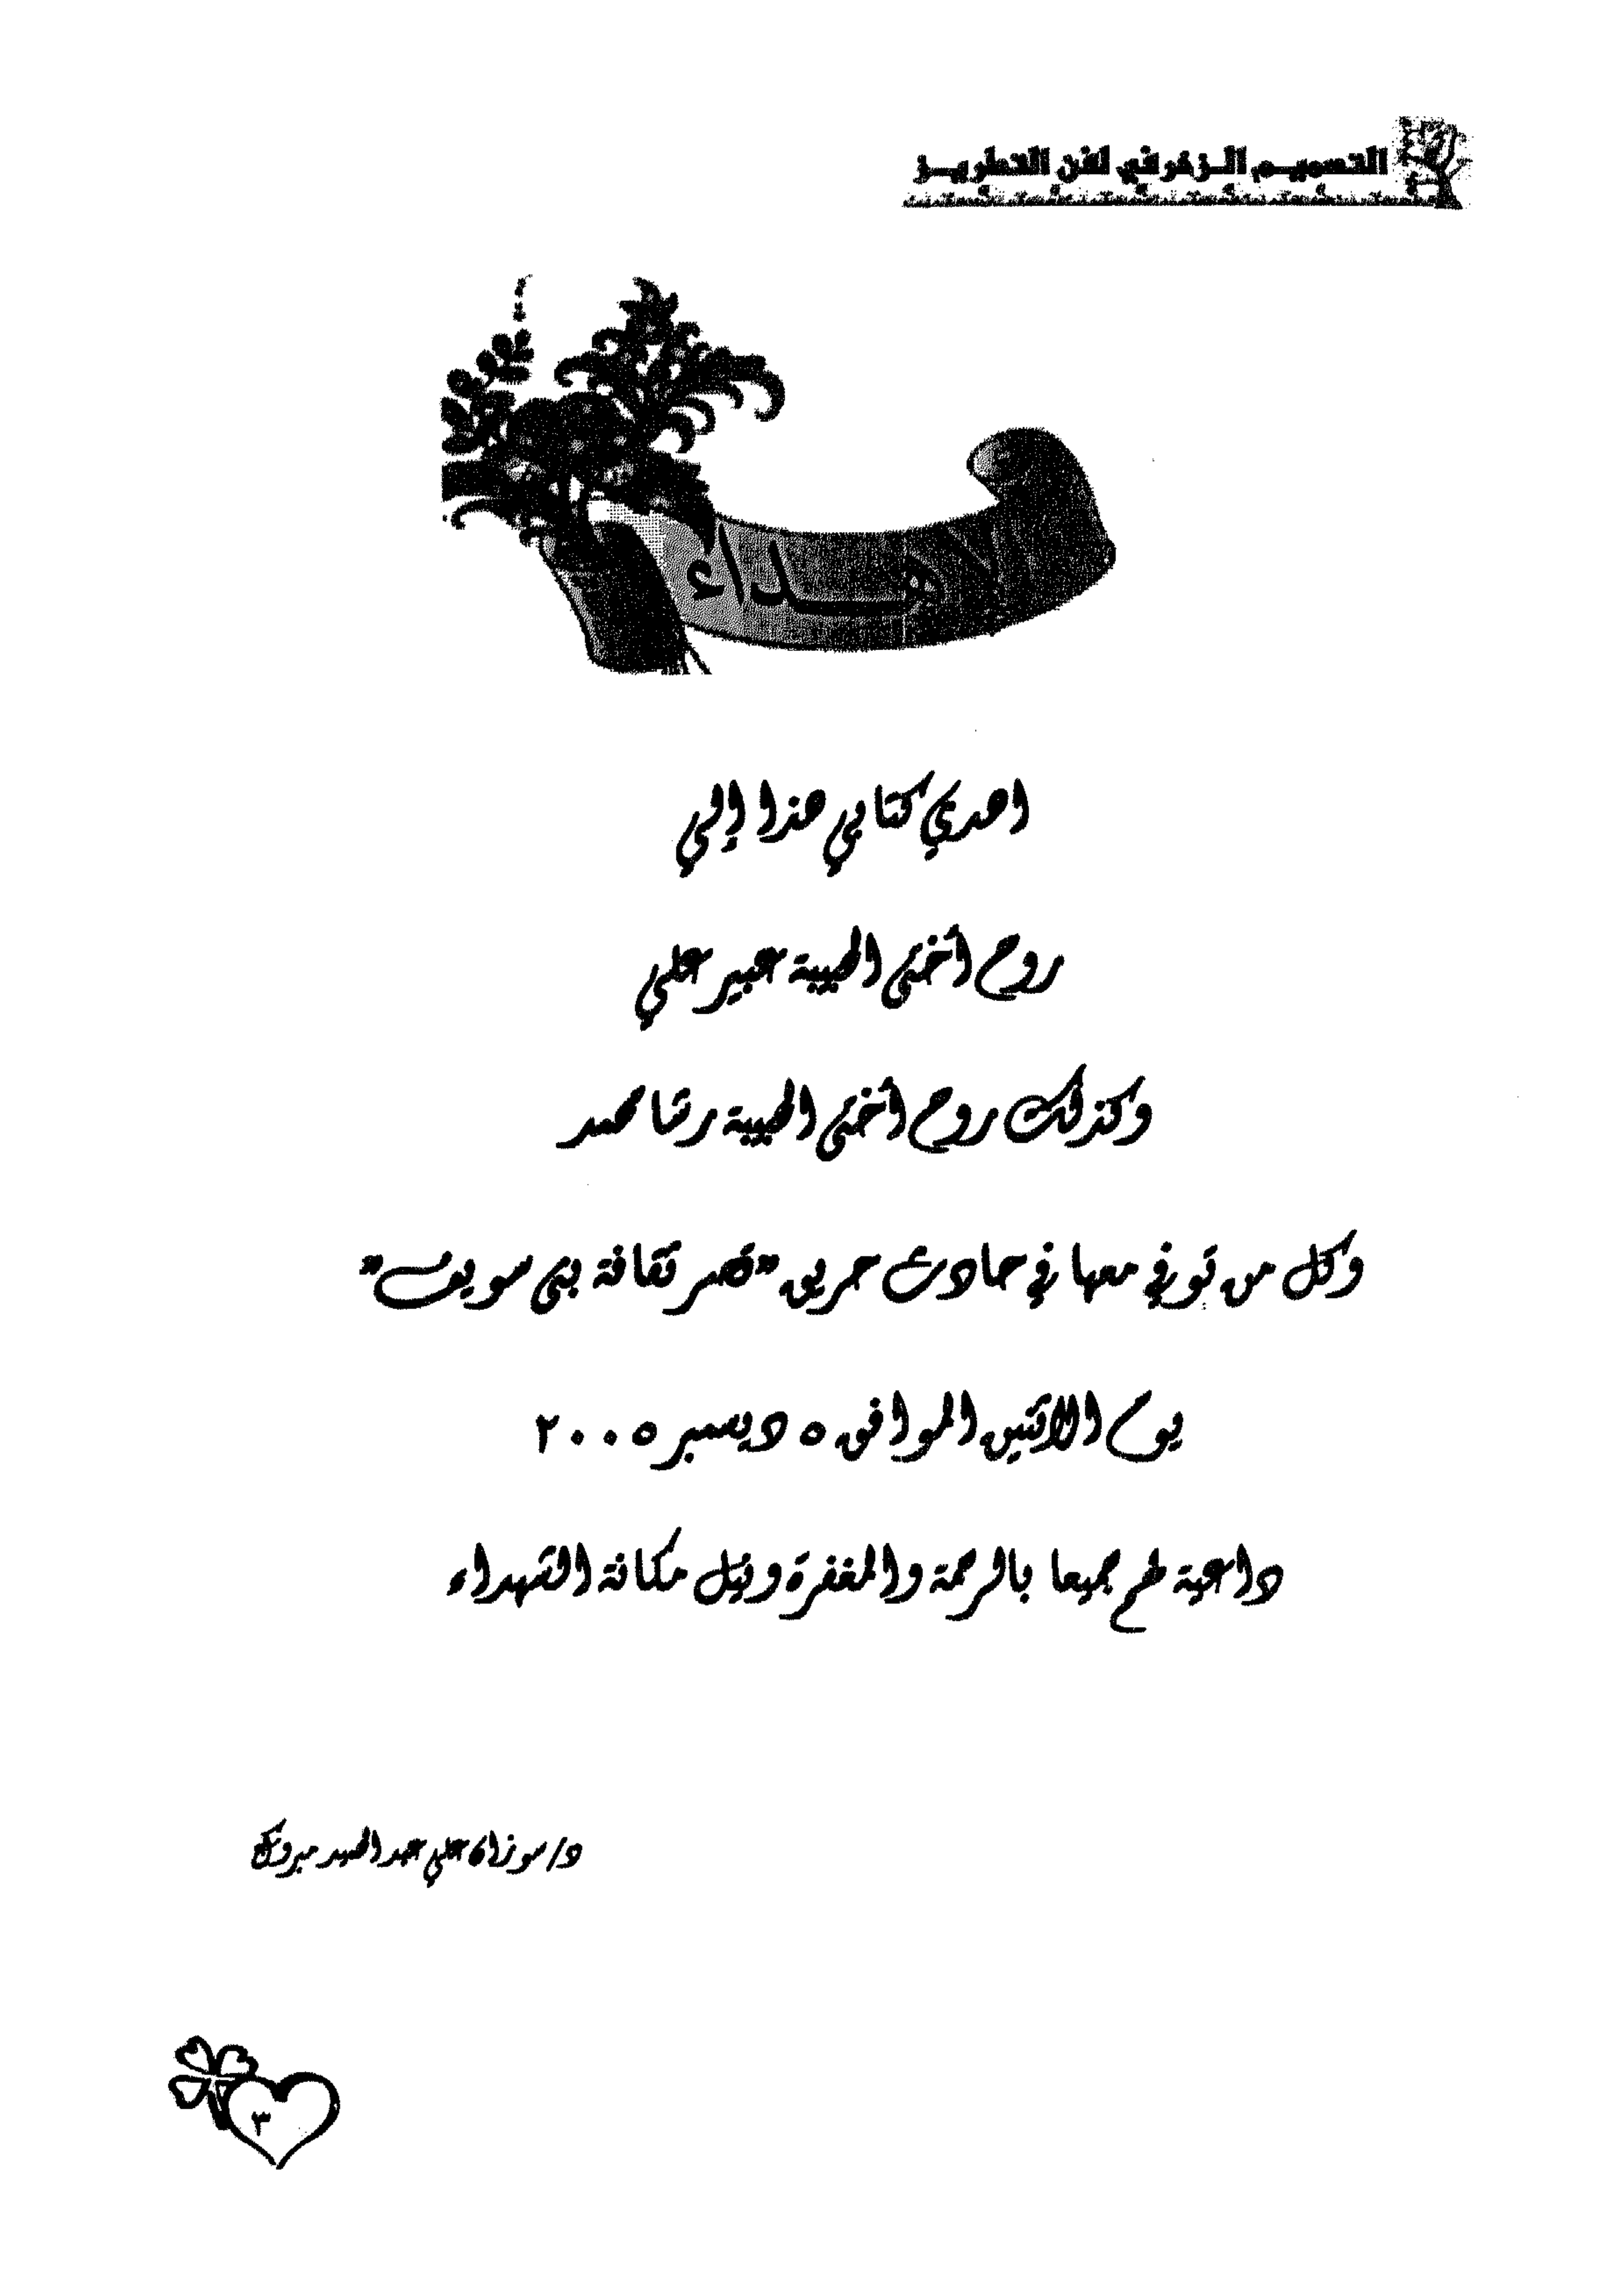 التصميم الزخرفي لفن التطريز
الاهداء
اهدي كتابي هذا إلي
روح أختى الحبيبة عبير علي
وكذلك روح أختى الحبيبة رشا محمد
وكل من توفي معها في حادث حريق "قصر ثقافة بنى سويف"
يوم الاثنين الموافق ٥ ديسمبر ٢٠٠٥
داعية لهم جميعا بالرحمة والمغفرة ونيل مكانة الشهداء
د/سوزان علي عبد الحميد مبروك
٣